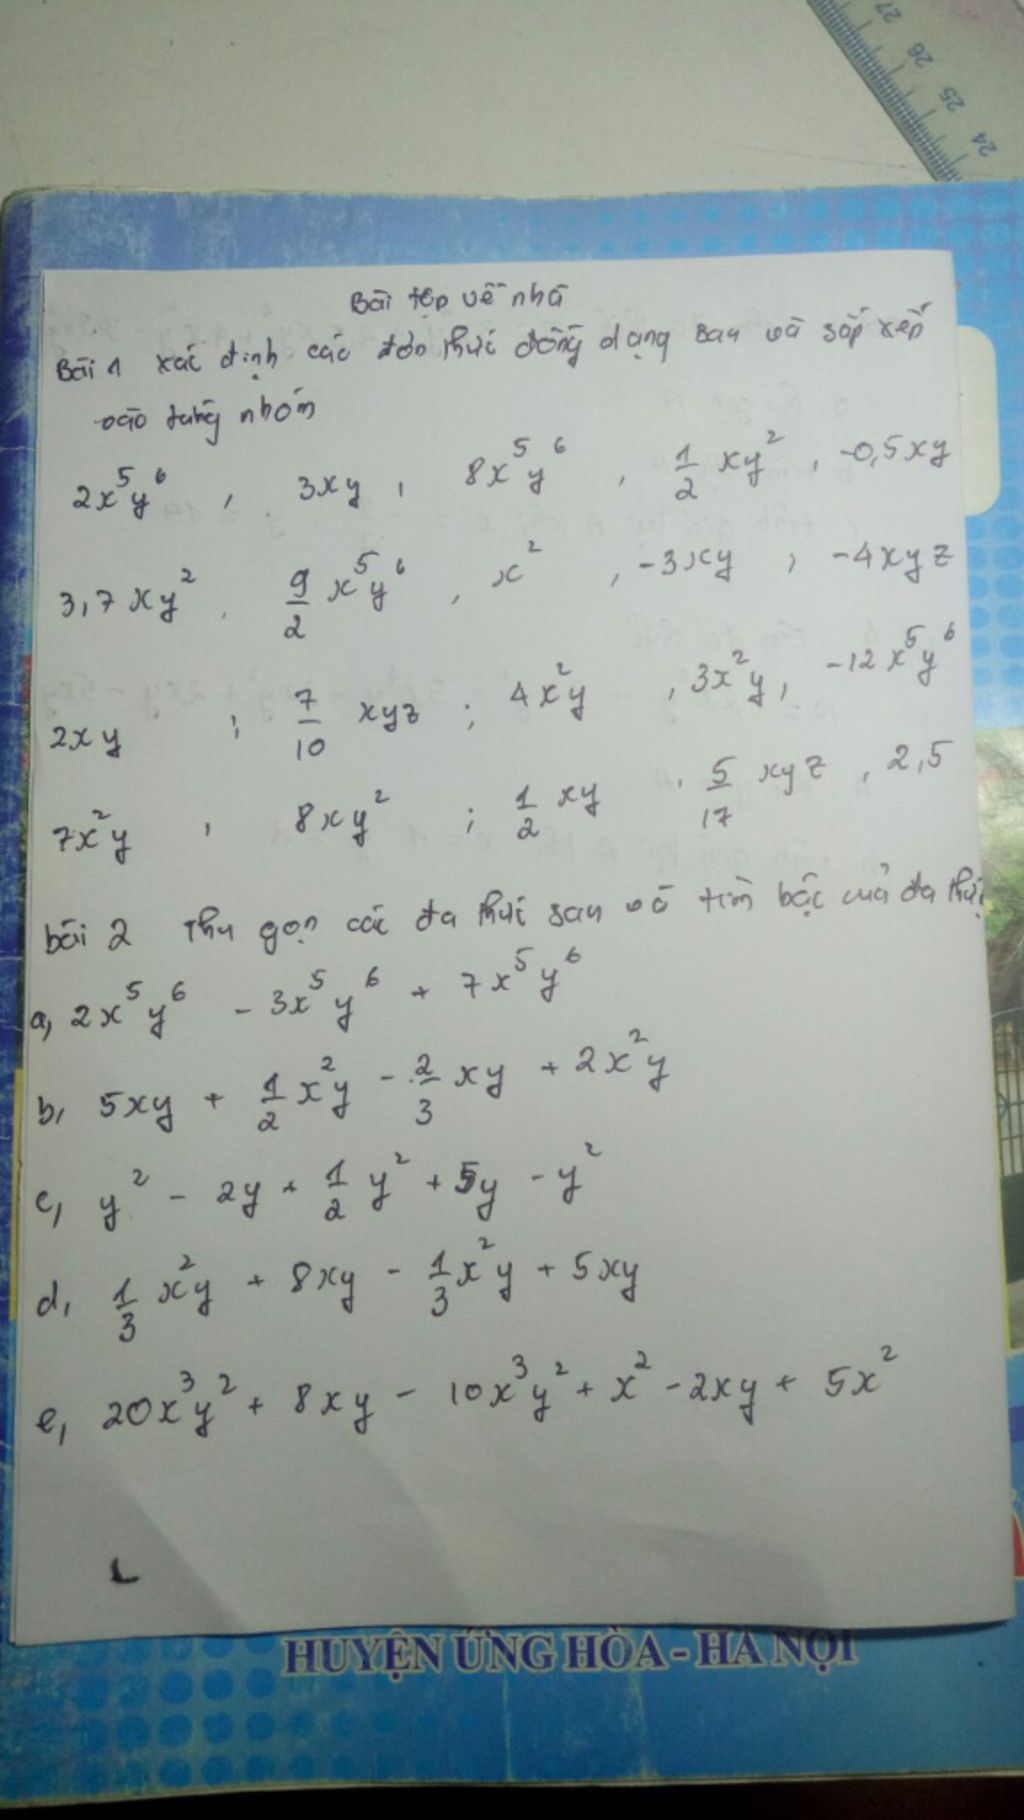 27
26
25
24
Bài tập về nhà
Bài 1 xác định các đơn thức đồng dạng sau và sắp xếp
vào từng nhóm
2x⁵y⁶ , 3xy , 8x⁵y⁶ , 1/2 xy² , -0,5xy
3,7xy² , 9/2 x⁵y⁶ , x² , -3xy , -4xyz
2xy ; 7/10 xyz ; 4x²y , 3x²y , -12x⁵y⁶
7x²y , 8xy² ; 1/2 xy , 5/17 xyz , 2,5
bài 2 Thu gọn các đa thức sau và tìm bậc của đa thức
a, 2x⁵y⁶ - 3x⁵y⁶ + 7x⁵y⁶
b, 5xy + 1/2 x²y - 2/3 xy + 2x²y
c, y² - 2y + 1/2 y² + 5y - y²
d, 1/3 x²y + 8xy - 1/3 x²y + 5xy
e, 20x³y² + 8xy - 10x³y² + x² - 2xy + 5x²
HUYỆN ỨNG HÒA - HÀ NỘI